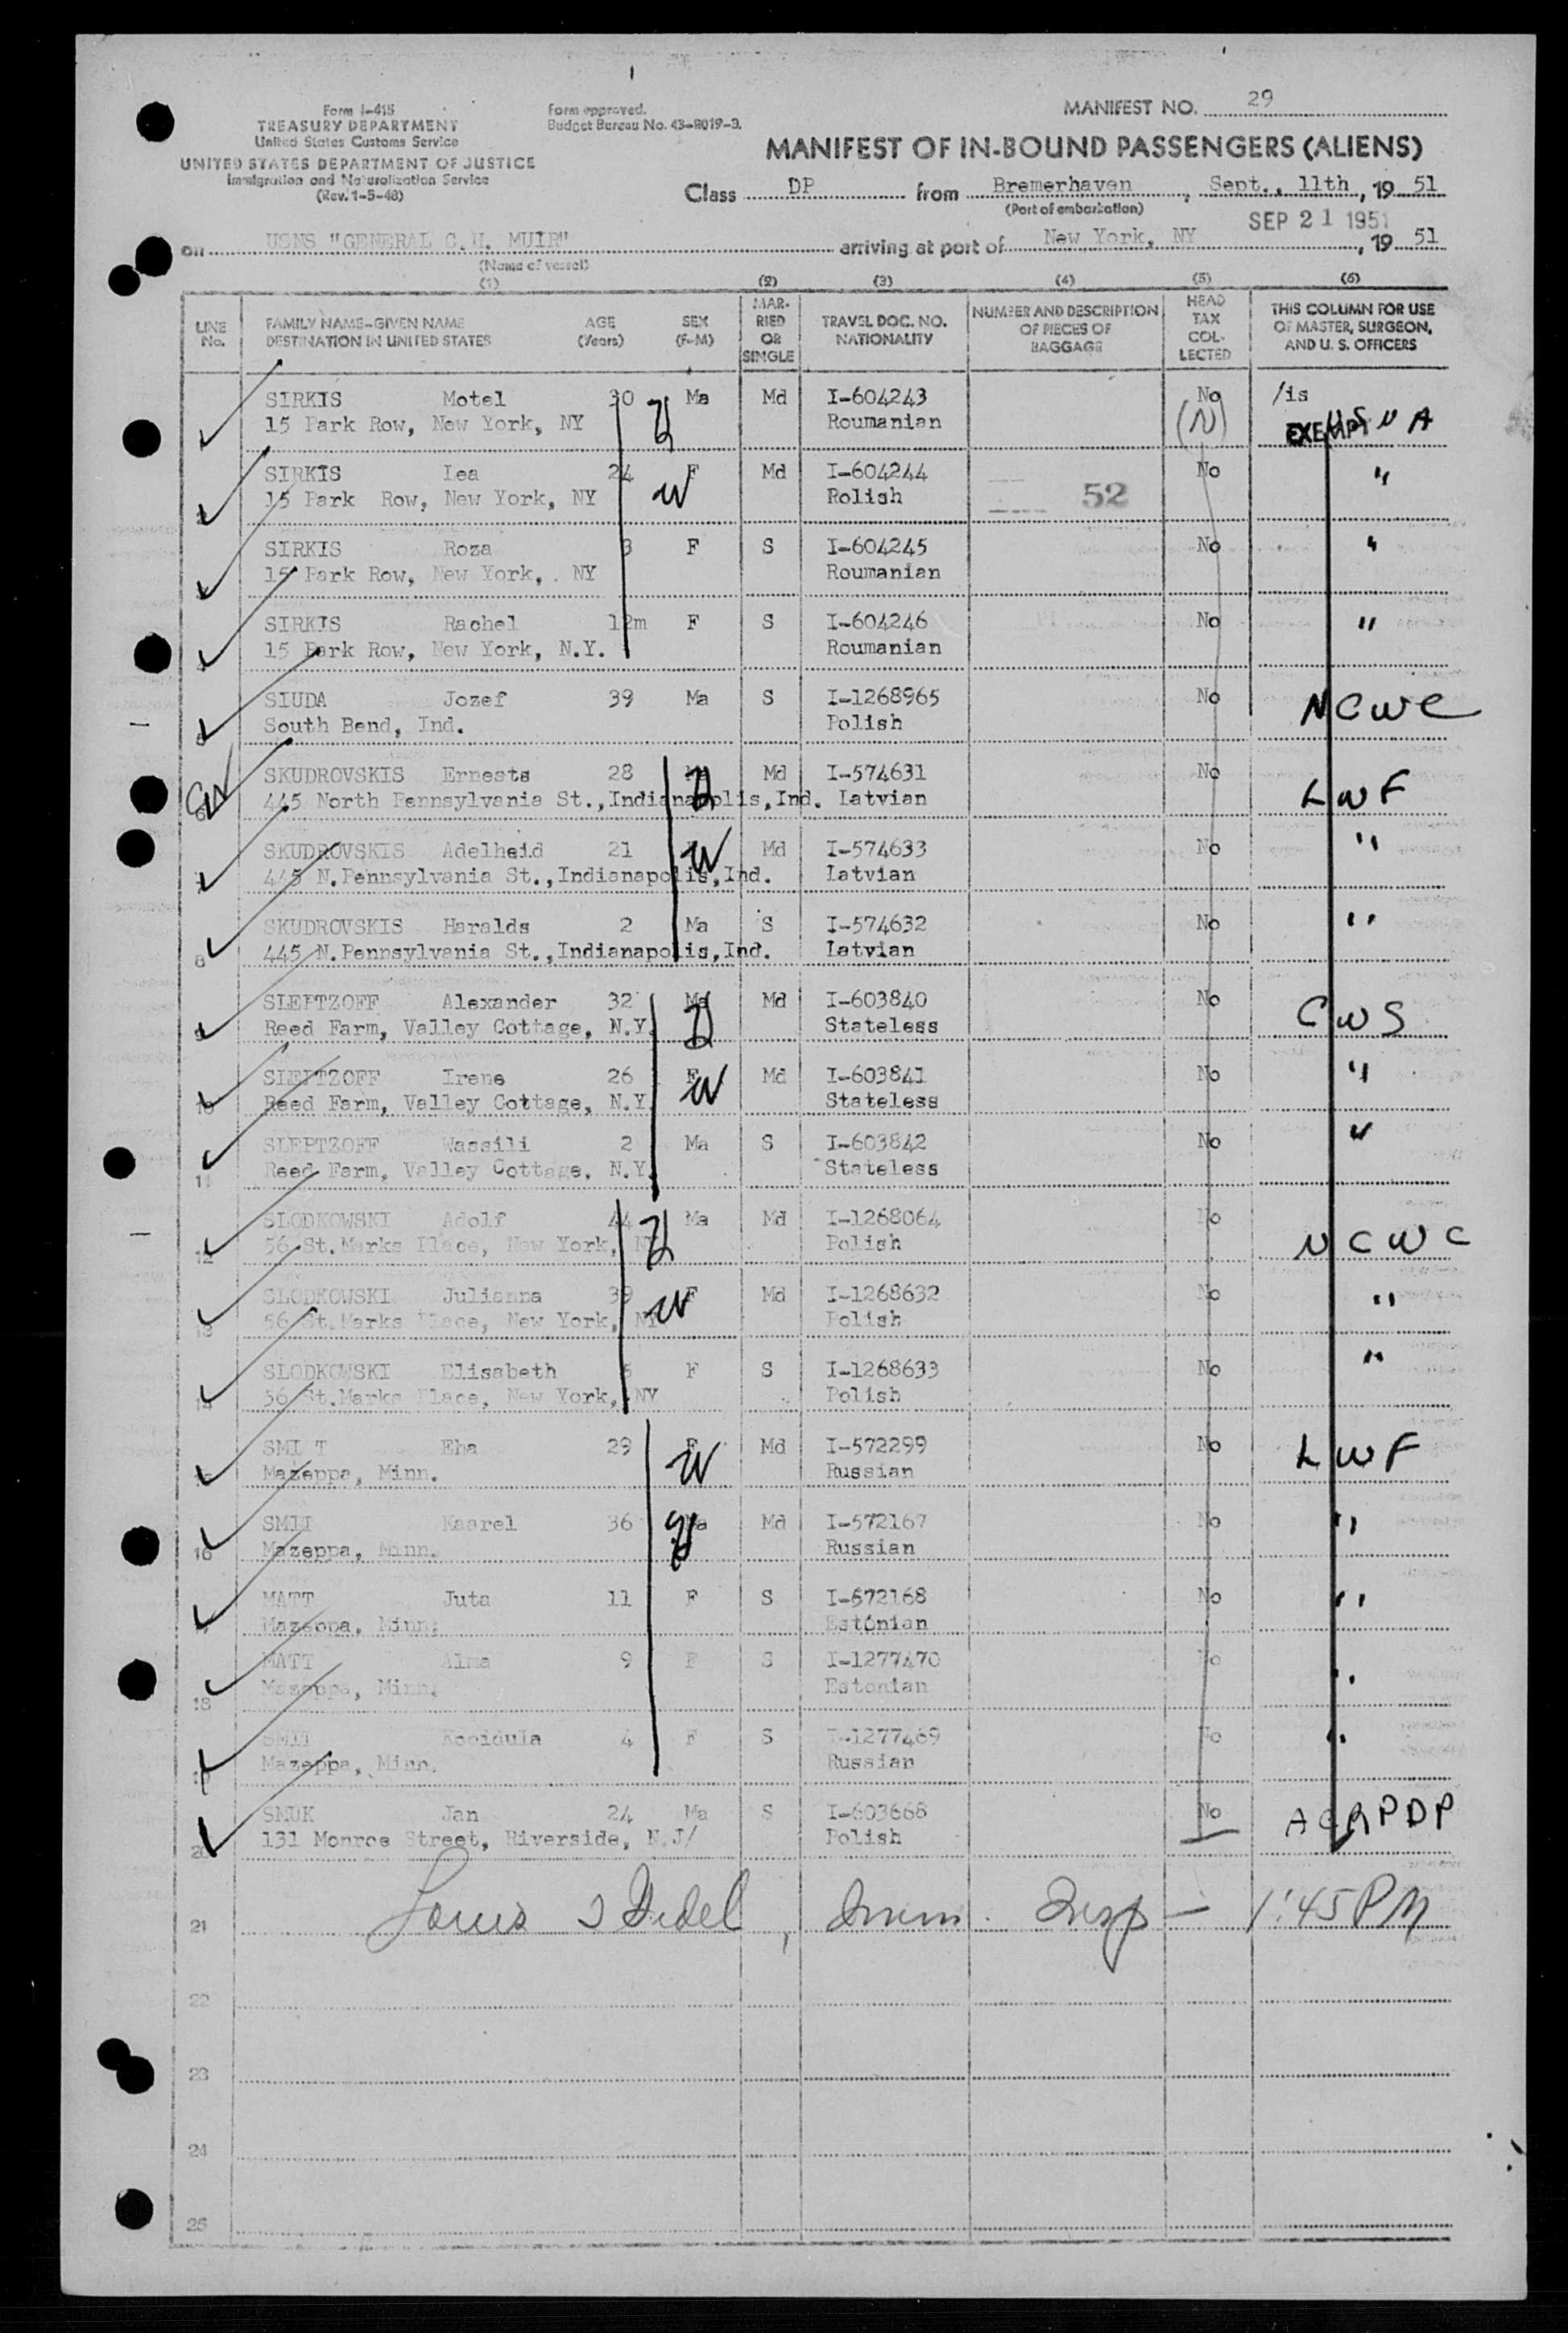 Form I-415
TREASURY DEPARTMENT
United States Customs Service
UNITED STATES DEPARTMENT OF JUSTICE
Immigration and Naturalization Service
(Rev. 1-5-48)
Form approved.
Budget Bureau No. 43-R019-3.
MANIFEST NO. 29
MANIFEST OF IN-BOUND PASSENGERS (ALIENS)
Class DP from Bremerhaven, Sept., 11th, 19 51
(Port of embarkation)
SEP 21 1951
on USNS "GENERAL C.H. MUIR" arriving at port of New York, NY, 19 51
(Name of vessel)
(1) (2) (3) (4) (5) (6)
LINE No. FAMILY NAME-GIVEN NAME DESTINATION IN UNITED STATES AGE (Years) SEX (F-M) MARRIED OR SINGLE TRAVEL DOC. NO. NATIONALITY NUMBER AND DESCRIPTION OF PIECES OF BAGGAGE HEAD TAX COLLECTED THIS COLUMN FOR USE OF MASTER, SURGEON, AND U. S. OFFICERS
SIRKIS Motel 30 Ma Md I-604243 No /is
15 Park Row, New York, NY H Roumanian (N) EXEMPT USNA
SIRKIS Lea 24 F Md I-604244 No "
15 Park Row, New York, NY W Polish 52
SIRKIS Roza 3 F S I-604245 No "
15 Park Row, New York, . NY Roumanian
SIRKIS Rachel 12m F S I-604246 No "
15 Park Row, New York, N.Y. Roumanian
5 SIUDA Jozef 39 Ma S I-1268965 No NCWC
South Bend, Ind. Polish
6 SKUDROVSKIS Ernests 28 H Md I-574631 No LWF
445 North Pennsylvania St.,Indianapolis,Ind. Latvian
7 SKUDROVSKIS Adelheid 21 W Md I-574633 No "
445 N.Pennsylvania St.,Indianapolis,Ind. Latvian
8 SKUDROVSKIS Haralds 2 Ma S I-574632 No "
445 N.Pennsylvania St.,Indianapolis,Ind. Latvian
9 SLEPTZOFF Alexander 32 Ma H Md I-603840 No CWS
Reed Farm, Valley Cottage, N.Y. Stateless
10 SLEPTZOFF Irene 26 F W Md I-603841 No "
Reed Farm, Valley Cottage, N.Y. Stateless
11 SLEPTZOFF Wassili 2 Ma S I-603842 No "
Reed Farm, Valley Cottage, N.Y. Stateless
12 SLODKOWSKI Adolf 44 H Ma Md I-1268064 No NCWC
56 St.Marks Place, New York, NY Polish
13 SLODKOWSKI Julianna 39 W F Md I-1268632 No "
56 St.Marks Place, New York, NY Polish
14 SLODKOWSKI Elisabeth F S I-1268633 No "
56 St.Marks Place, New York, NY Polish
SMI T Eha 29 F W Md I-572299 No LWF
Mazeppa, Minn. Russian
16 SMIT Kaarel 36 Ma H Md I-572167 No "
Mazeppa, Minn. Russian
MATT Juta 11 F S I-572168 No "
Mazeppa, Minn. Estonian
18 MATT Alma 9 F S I-1277470 No "
Mazeppa, Minn. Estonian
19 SMIT Kooidula 4 F S I-1277469 No "
Mazeppa, Minn. Russian
20 SMUK Jan 24 Ma S I-603668 No
131 Monroe Street, Riverside, N.J/ Polish
21 Louis Imm. Insp - 1:45 PM
22
23
24
25